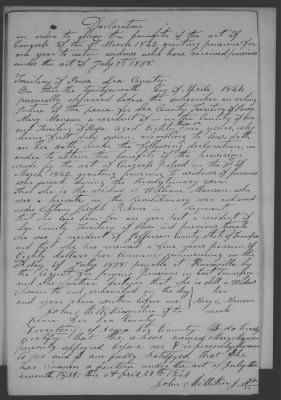 Declaration
in order to obtain the benefits of the act of
Congress of the 3d March 1843, granting pensions for
one year to certain widows who have received pensions
under the act of July 7th 1838.
Territory of Iowa. Lee County
On this the twentyseventh day of April, 1844
personally appeared before the subscriber an acting
Justice of the peace for Lee County Territory of Iowa
Mary Manson a resident of in the County of Lee
and Territory of Iowa aged Eighty four years, who
being first duly sworn, according to law, doth
on her oath, make the following declaration, in
order to obtain the benefits of the provision
made by the act of Congress passed on the 3d of
March 1843 granting pensions to widows of persons
who served during the Revolutionary war
that she is the widow of William Manson, who
was a private in the Revolutionary war
under Captain Joseph
that she has been for one year last a resident of
Lee County Territory of Iowa and previous thereto
she was a resident of Jefferson County State of Tennessee
and that she has received a five years pension of
Eighty dollars five Commencing on the
4th day of July 1838 payable at Knoxville by
the Agent for paying Pensions in East Tennessee
and she further testifies that she is still a Widow
Sworn to and subscribed on the day
and year above written before me Mary Manson
mark
peace Lee County
Territory of Iowa Lee County I do hereby
certify that the above named Mary Manson
personally appeared before me & is personally known
to me and I am fully satisfied that she
was a pension under the act of July the
seventh 1838. this April 27th 1844
John